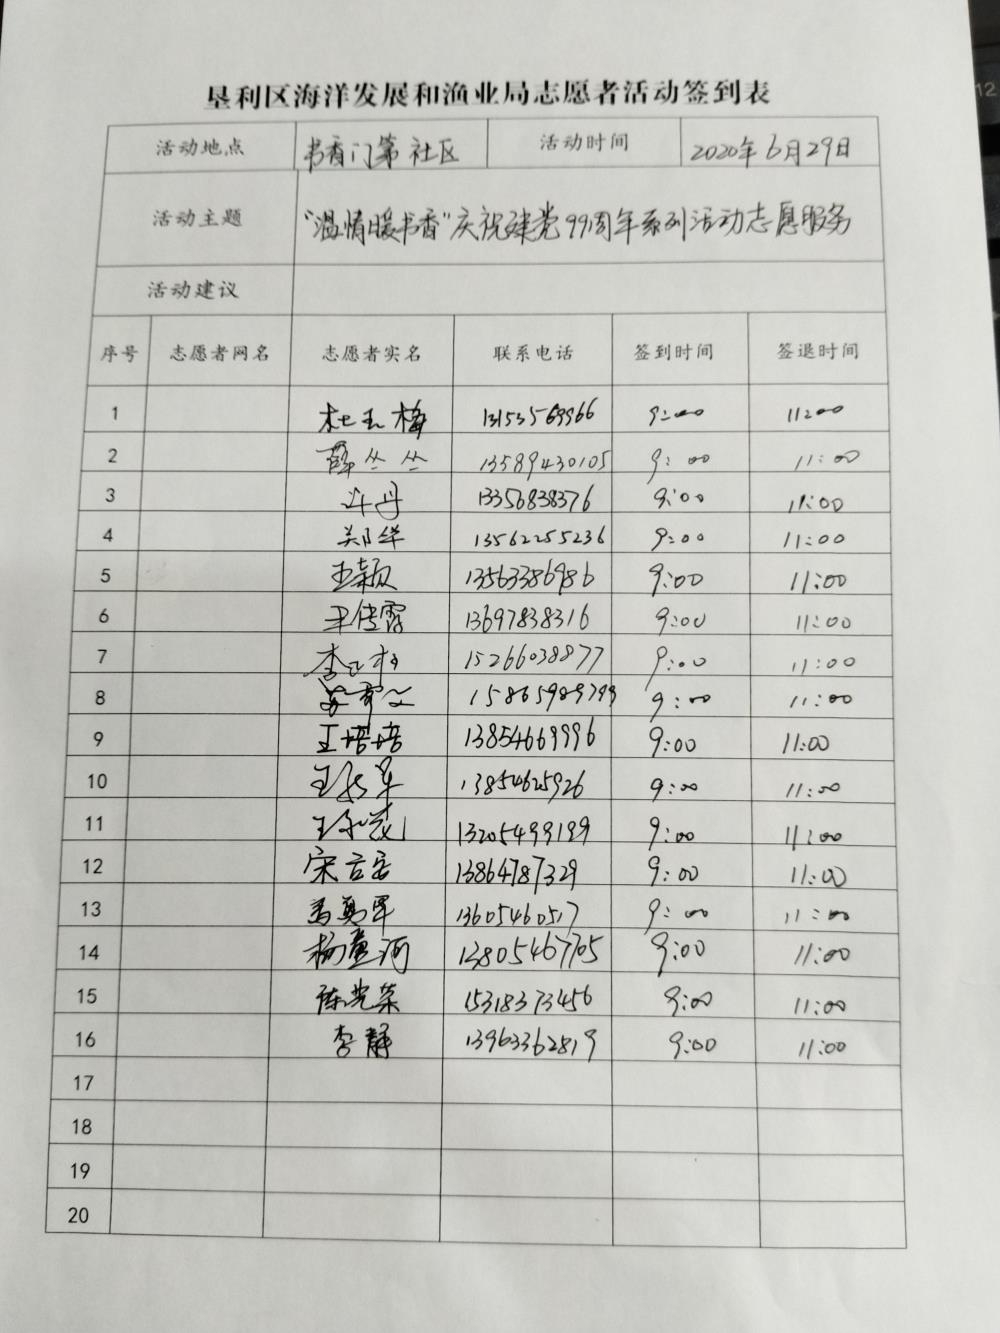 垦利区海洋发展和渔业局志愿者活动签到表
活动地点 书香门第社区 活动时间 2020年6月29日
活动主题 "温情暖书香"庆祝建党99周年系列活动志愿服务
活动建议
序号 志愿者网名 志愿者实名 联系电话 签到时间 签退时间
1 杜玉梅 13153569966 9:00 11:00
2 薛丛丛 13589430105 9:00 11:00
3 许丹 13356838376 9:00 11:00
4 郑华 13562255236 9:00 11:00
5 王颖 13563386986 9:00 11:00
6 尹传霞 13697838316 9:00 11:00
7 15266038877 9:00 11:00
8 15865989799 9:00 11:00
9 王培培 13854669996 9:00 11:00
10 13854625926 9:00 11:00
11 13205499199 9:00 11:00
12 宋吉安 13864787329 9:00 11:00
13 13605460517 9:00 11:00
14 13805467705 9:00 11:00
15 陈光荣 15318373456 9:00 11:00
16 李静 13963362819 9:00 11:00
17
18
19
20
12